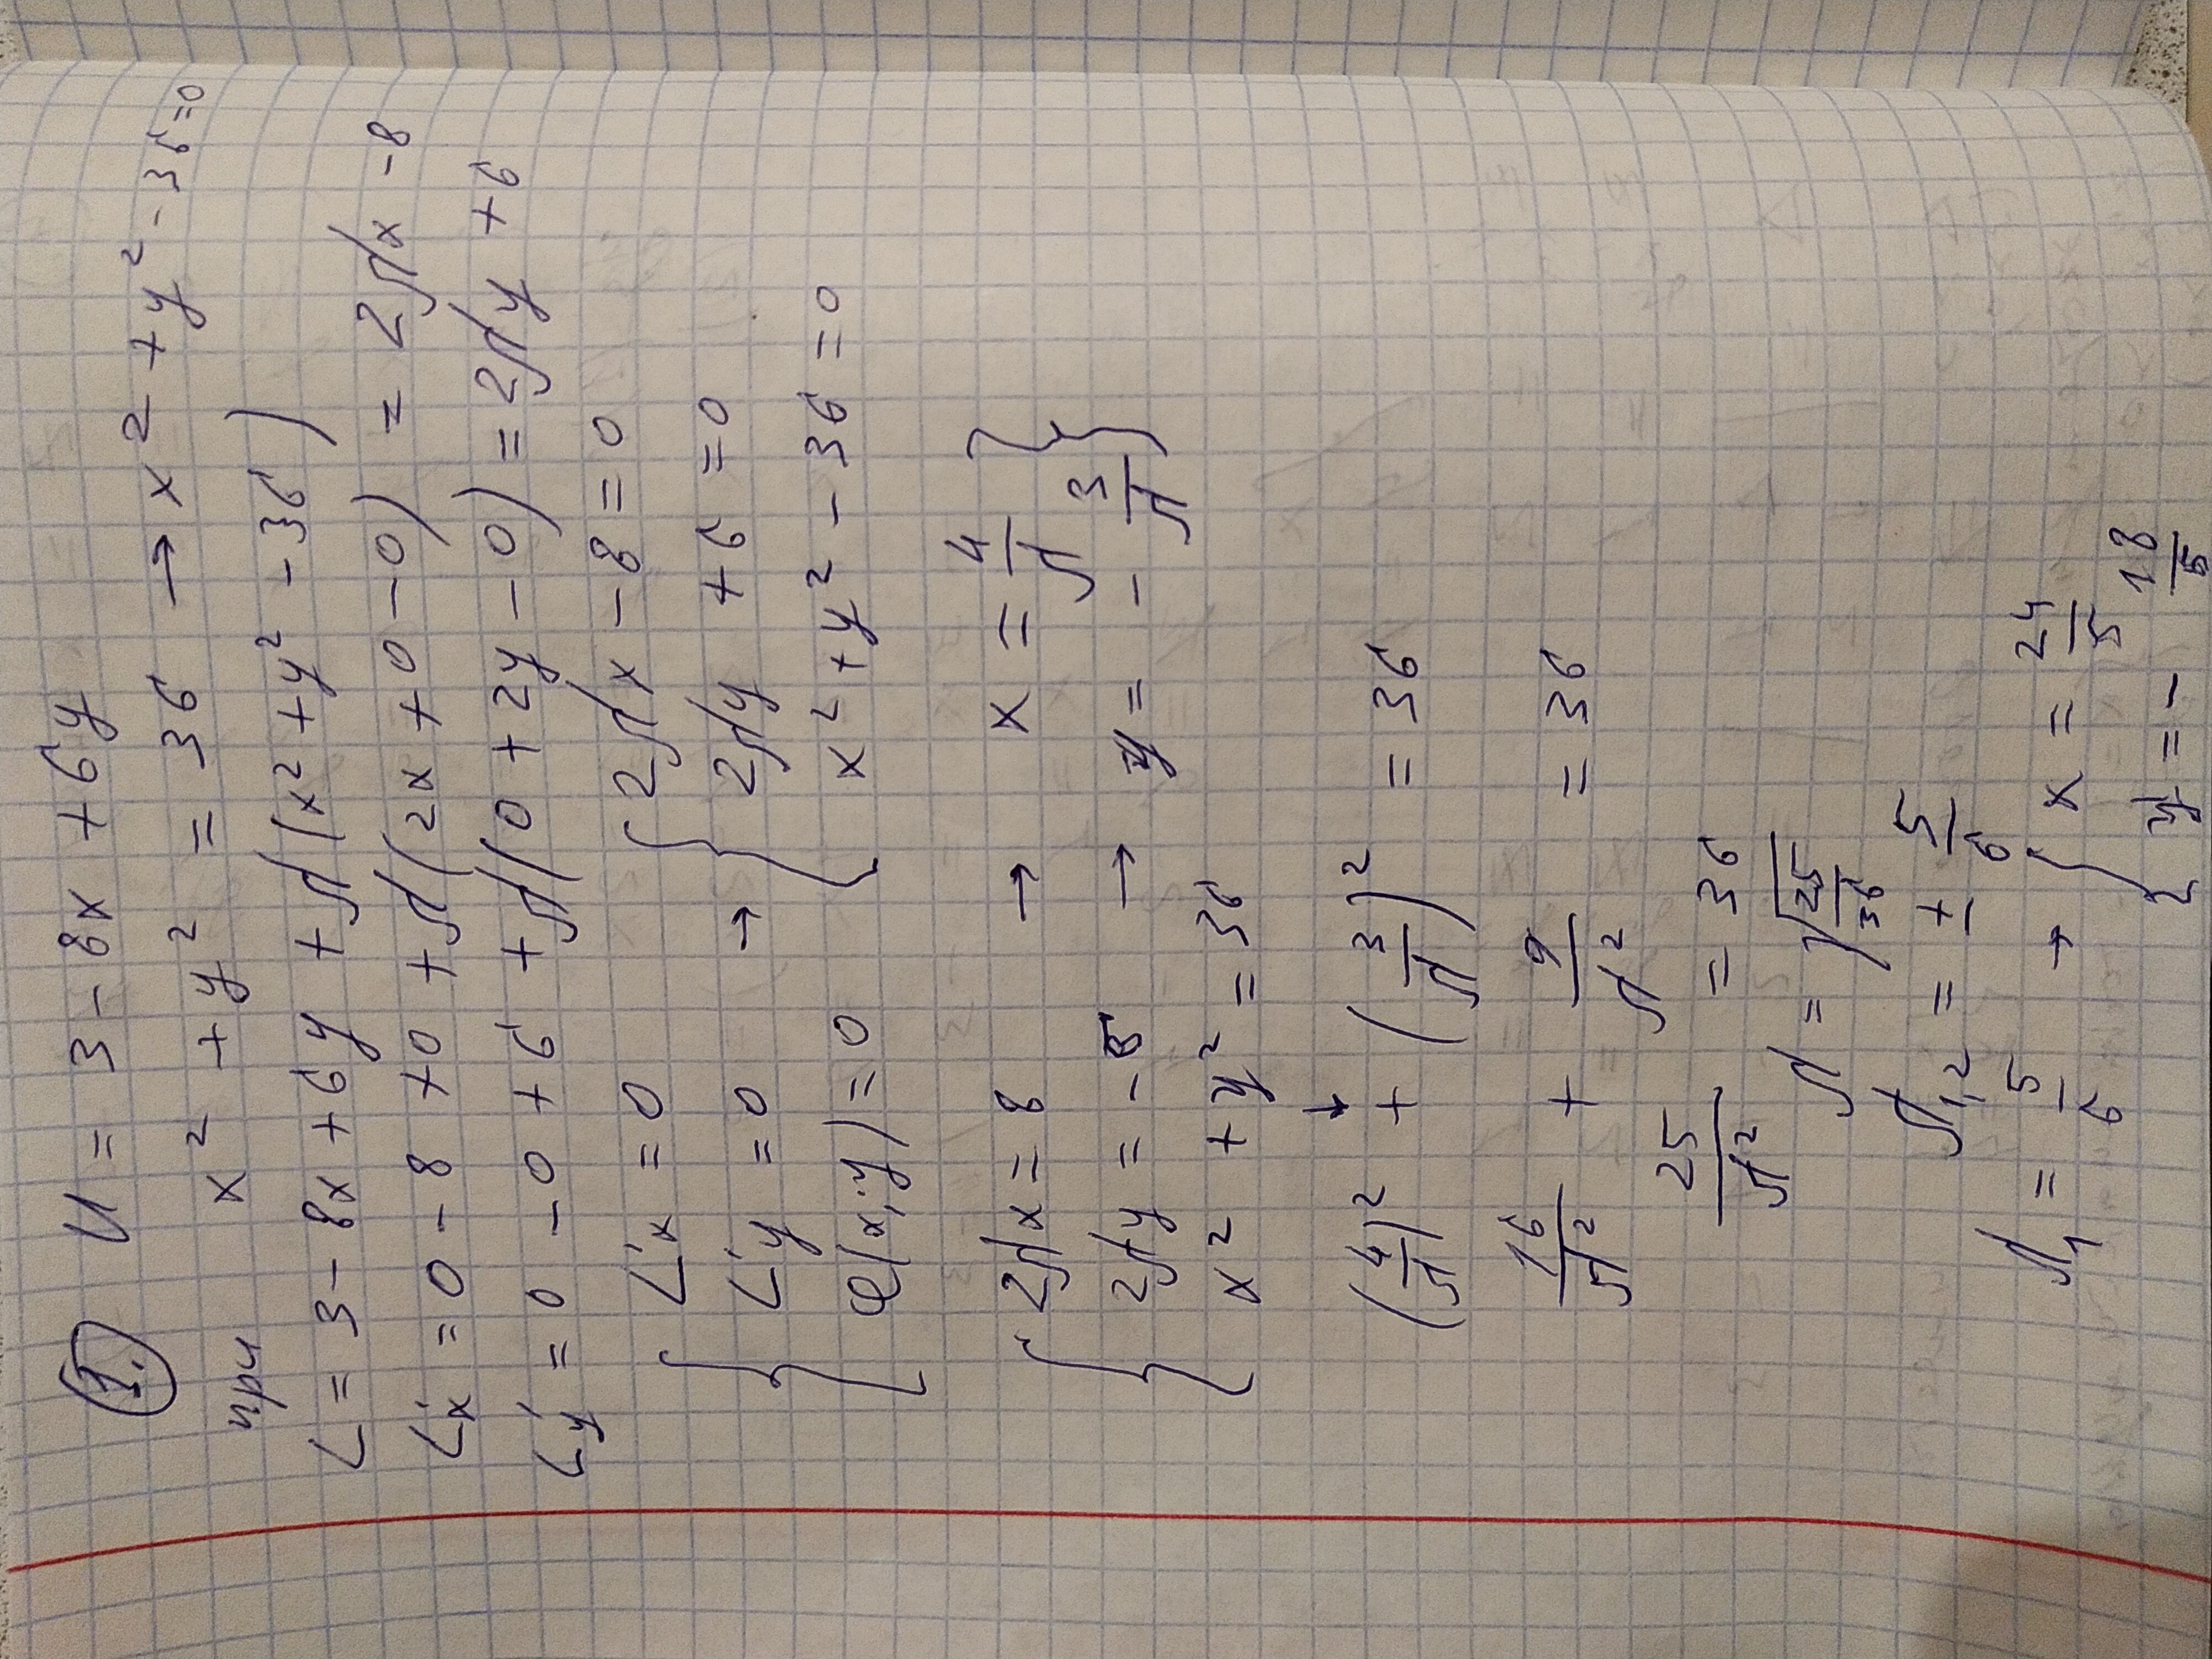 1. U = 3 - 8x + 6y
при x² + y² = 36 → x² + y² - 36 = 0
L = 3 - 8x + 6y + λ(x² + y² - 36)
L'x = 0 - 8 + 0 + λ(2x + 0 - 0) = 2λx - 8
L'y = 0 - 0 + 6 + λ(0 + 2y - 0) = 2λy + 6
{ L'x = 0 → { 2λx - 8 = 0
L'y = 0 2λy + 6 = 0
φ(x; y) = 0 x² + y² - 36 = 0
{ 2λx = 8 → x = 4/λ }
2λy = -6 → y = - 3/λ
x² + y² = 36
↓
(4/λ)² + (3/λ)² = 36
16/λ² + 9/λ² = 36
25/λ² = 36
λ = √(25/36)
λ1,2 = ± 5/6
λ1 = 5/6 → { x = 24/5
y = - 18/5